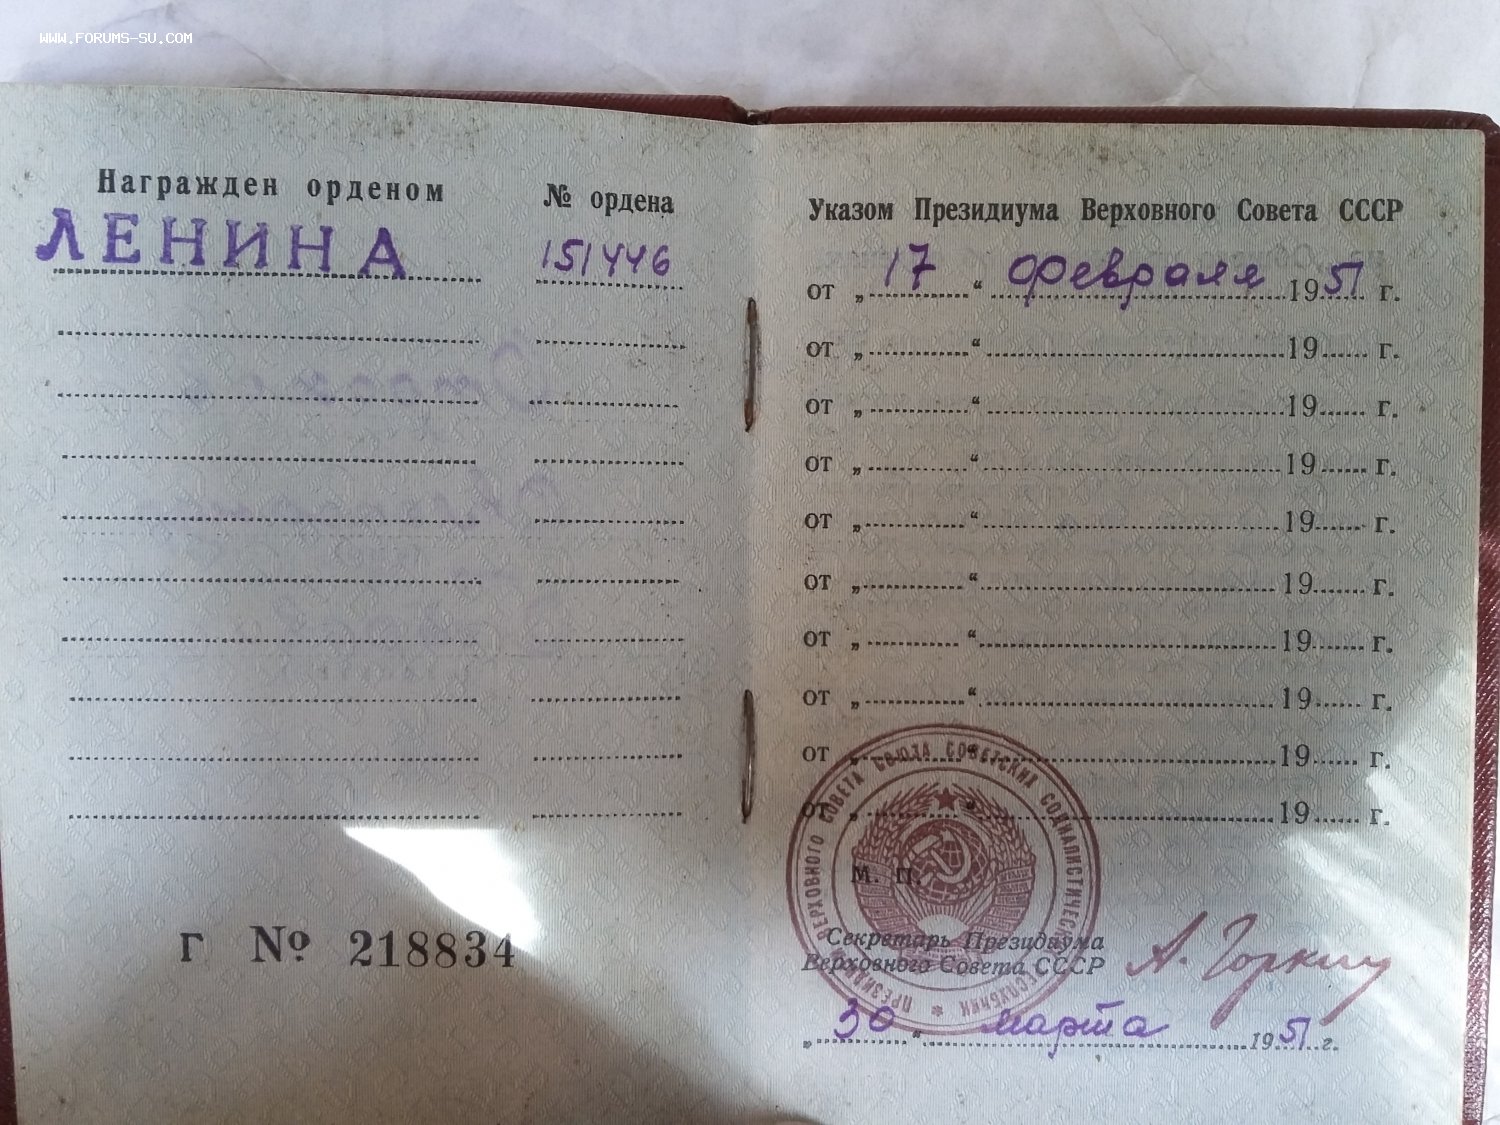 WWW.FORUMS-SU.COM
Награжден орденом № ордена
ЛЕНИНА 151446
Г № 218834
Указом Президиума Верховного Совета СССР
от „17“ февраля 1951 г.
от „ “ 19 г.
от „ “ 19 г.
от „ “ 19 г.
от „ “ 19 г.
от „ “ 19 г.
от „ “ 19 г.
от „ “ 19 г.
от „ “ 19 г.
от „ “ 19 г.
ВЕРХОВНОГО СОВЕТА СОЮЗА СОВЕТСКИХ
М. П.
Секретарь Президиума
Верховного Совета СССР А. Горкин
„30“ марта 1951 г.